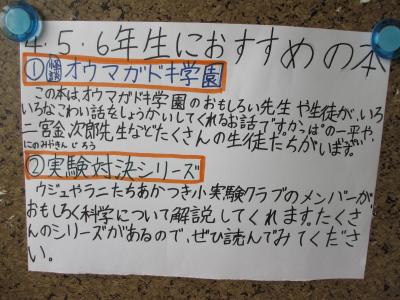 4.5.6年生におすすめの本
①怪談オウマガドキ学園
この本は、オウマガドキ学園のおもしろい先生や生徒が、いろ
いろなこわい話をしょうかいしてくれるお話です。かっぱの一平や、
二宮金次郎先生などたくさんの生徒たちがいます。
にのみやきんじろう
②実験対決シリーズ
ウジュやラニたちあかつき小実験クラブのメンバーが、
おもしろく科学について解説してくれます。たくさ
んのシリーズがあるので、ぜひ読んでみてくださ
い。